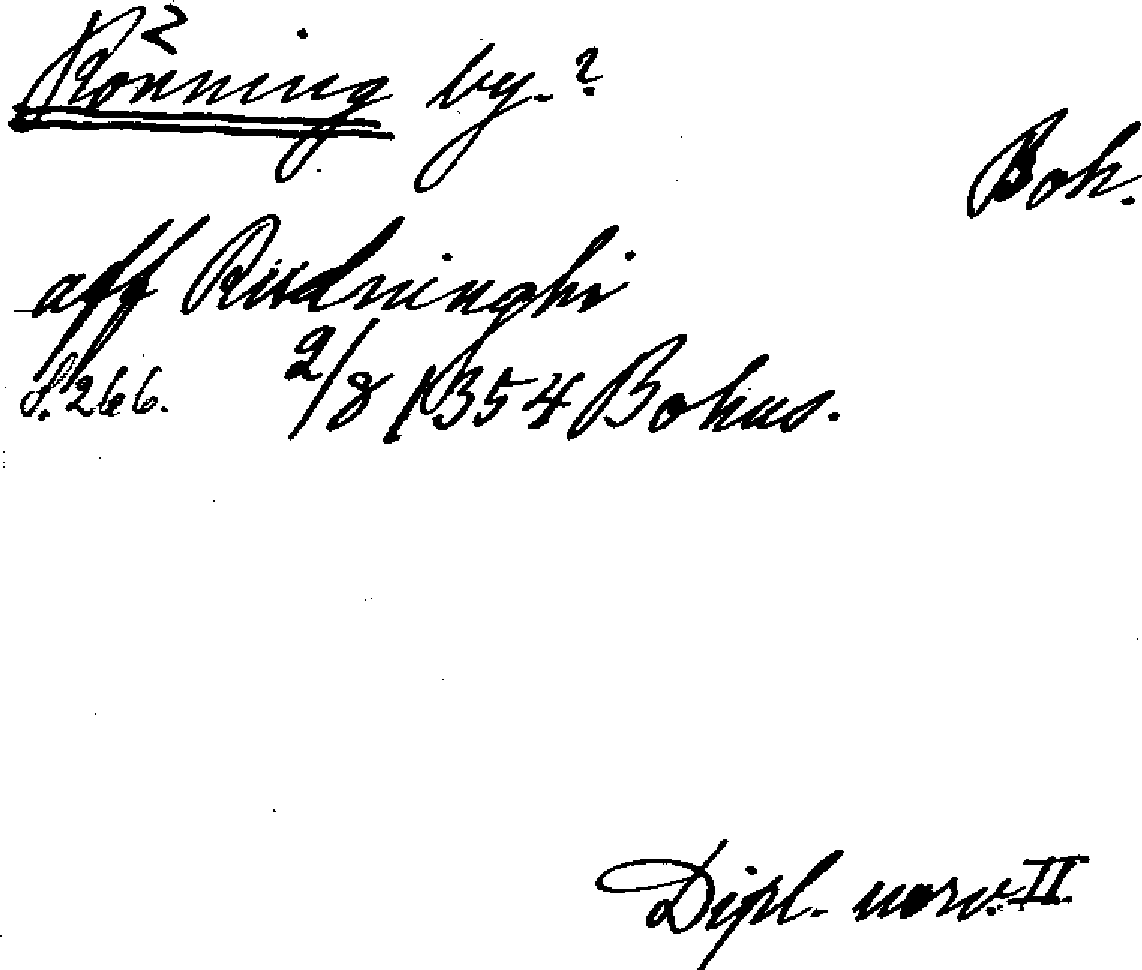 Rönning by.?
Boh.
aff Rudninghi
S. 266. 2/8 1354 Bohus.
Dipl. norv. II